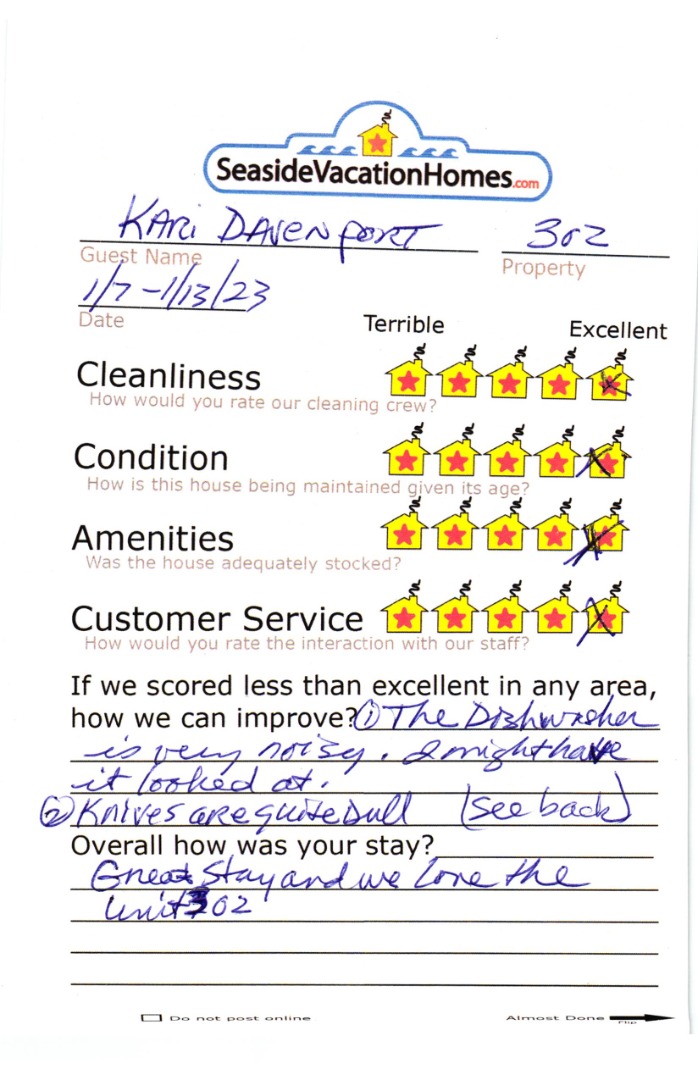 SeasideVacationHomes.com
KARi DAVENPORT 302
Guest Name Property
1/7-1/13/23
Date
Terrible Excellent
Cleanliness
How would you rate our cleaning crew?
Condition
How is this house being maintained given its age?
Amenities
Was the house adequately stocked?
Customer Service
How would you rate the interaction with our staff?
If we scored less than excellent in any area,
how we can improve? ① The Dishwasher
is very noisy. I might have
it looked at.
② Knives are quite dull (see back)
Overall how was your stay?
Great Stay and we love the
Unit 302
Do not post online Almost Done
Flip